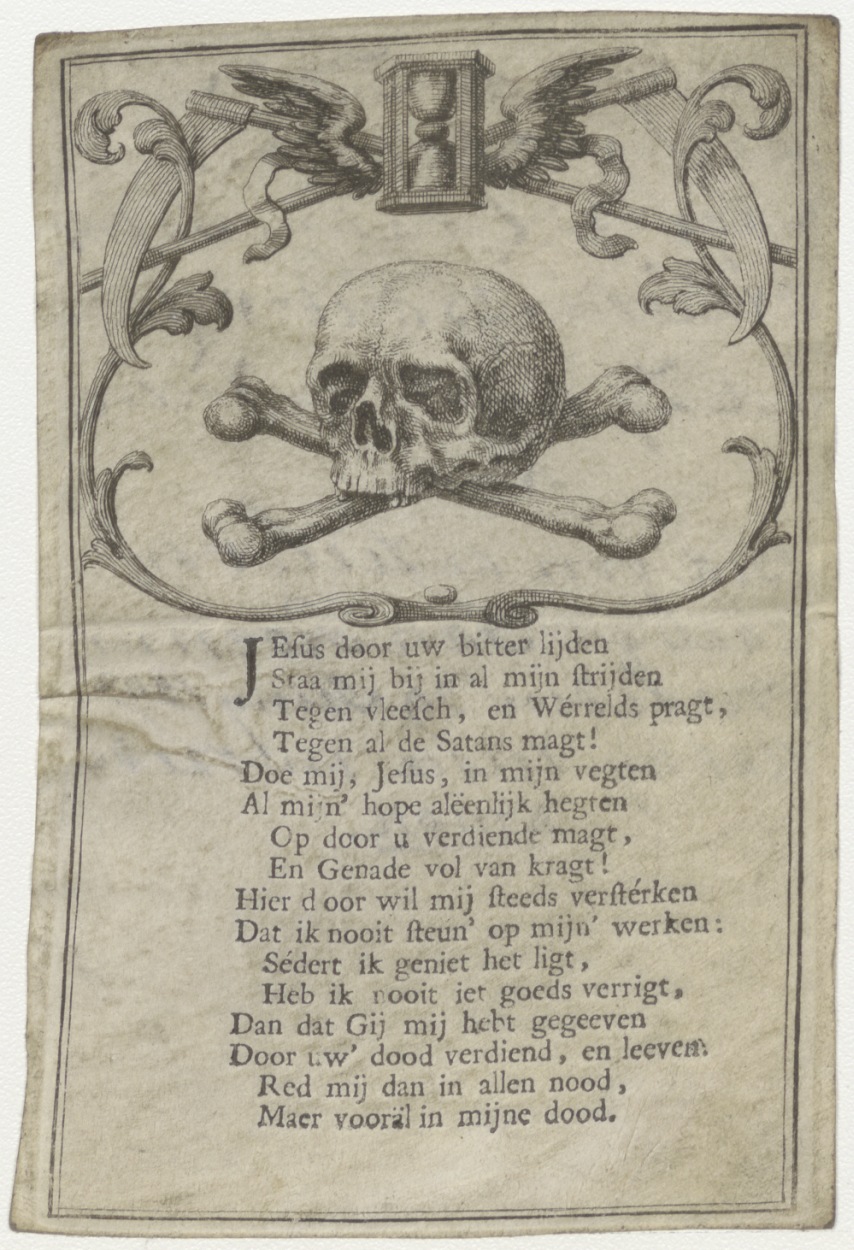 JEſus door uw bitter lijden
Staa mij bij in al mijn ſtrijden
Tegen vleeſch, en Wérrelds pragt,
Tegen al de Satans magt!
Doe mij, Jeſus, in mijn vegten
Al mijn' hope alëenlijk hegten
Op door u verdiende magt,
En Genade vol van kragt!
Hier door wil mij ſteeds verſtérken
Dat ik nooit ſteun' op mijn' werken:
Sédert ik geniet het ligt,
Heb ik nooit iet goeds verrigt,
Dan dat Gij mij hebt gegeeven
Door uw' dood verdiend, en leeven:
Red mij dan in allen nood,
Maer vooräl in mijne dood.